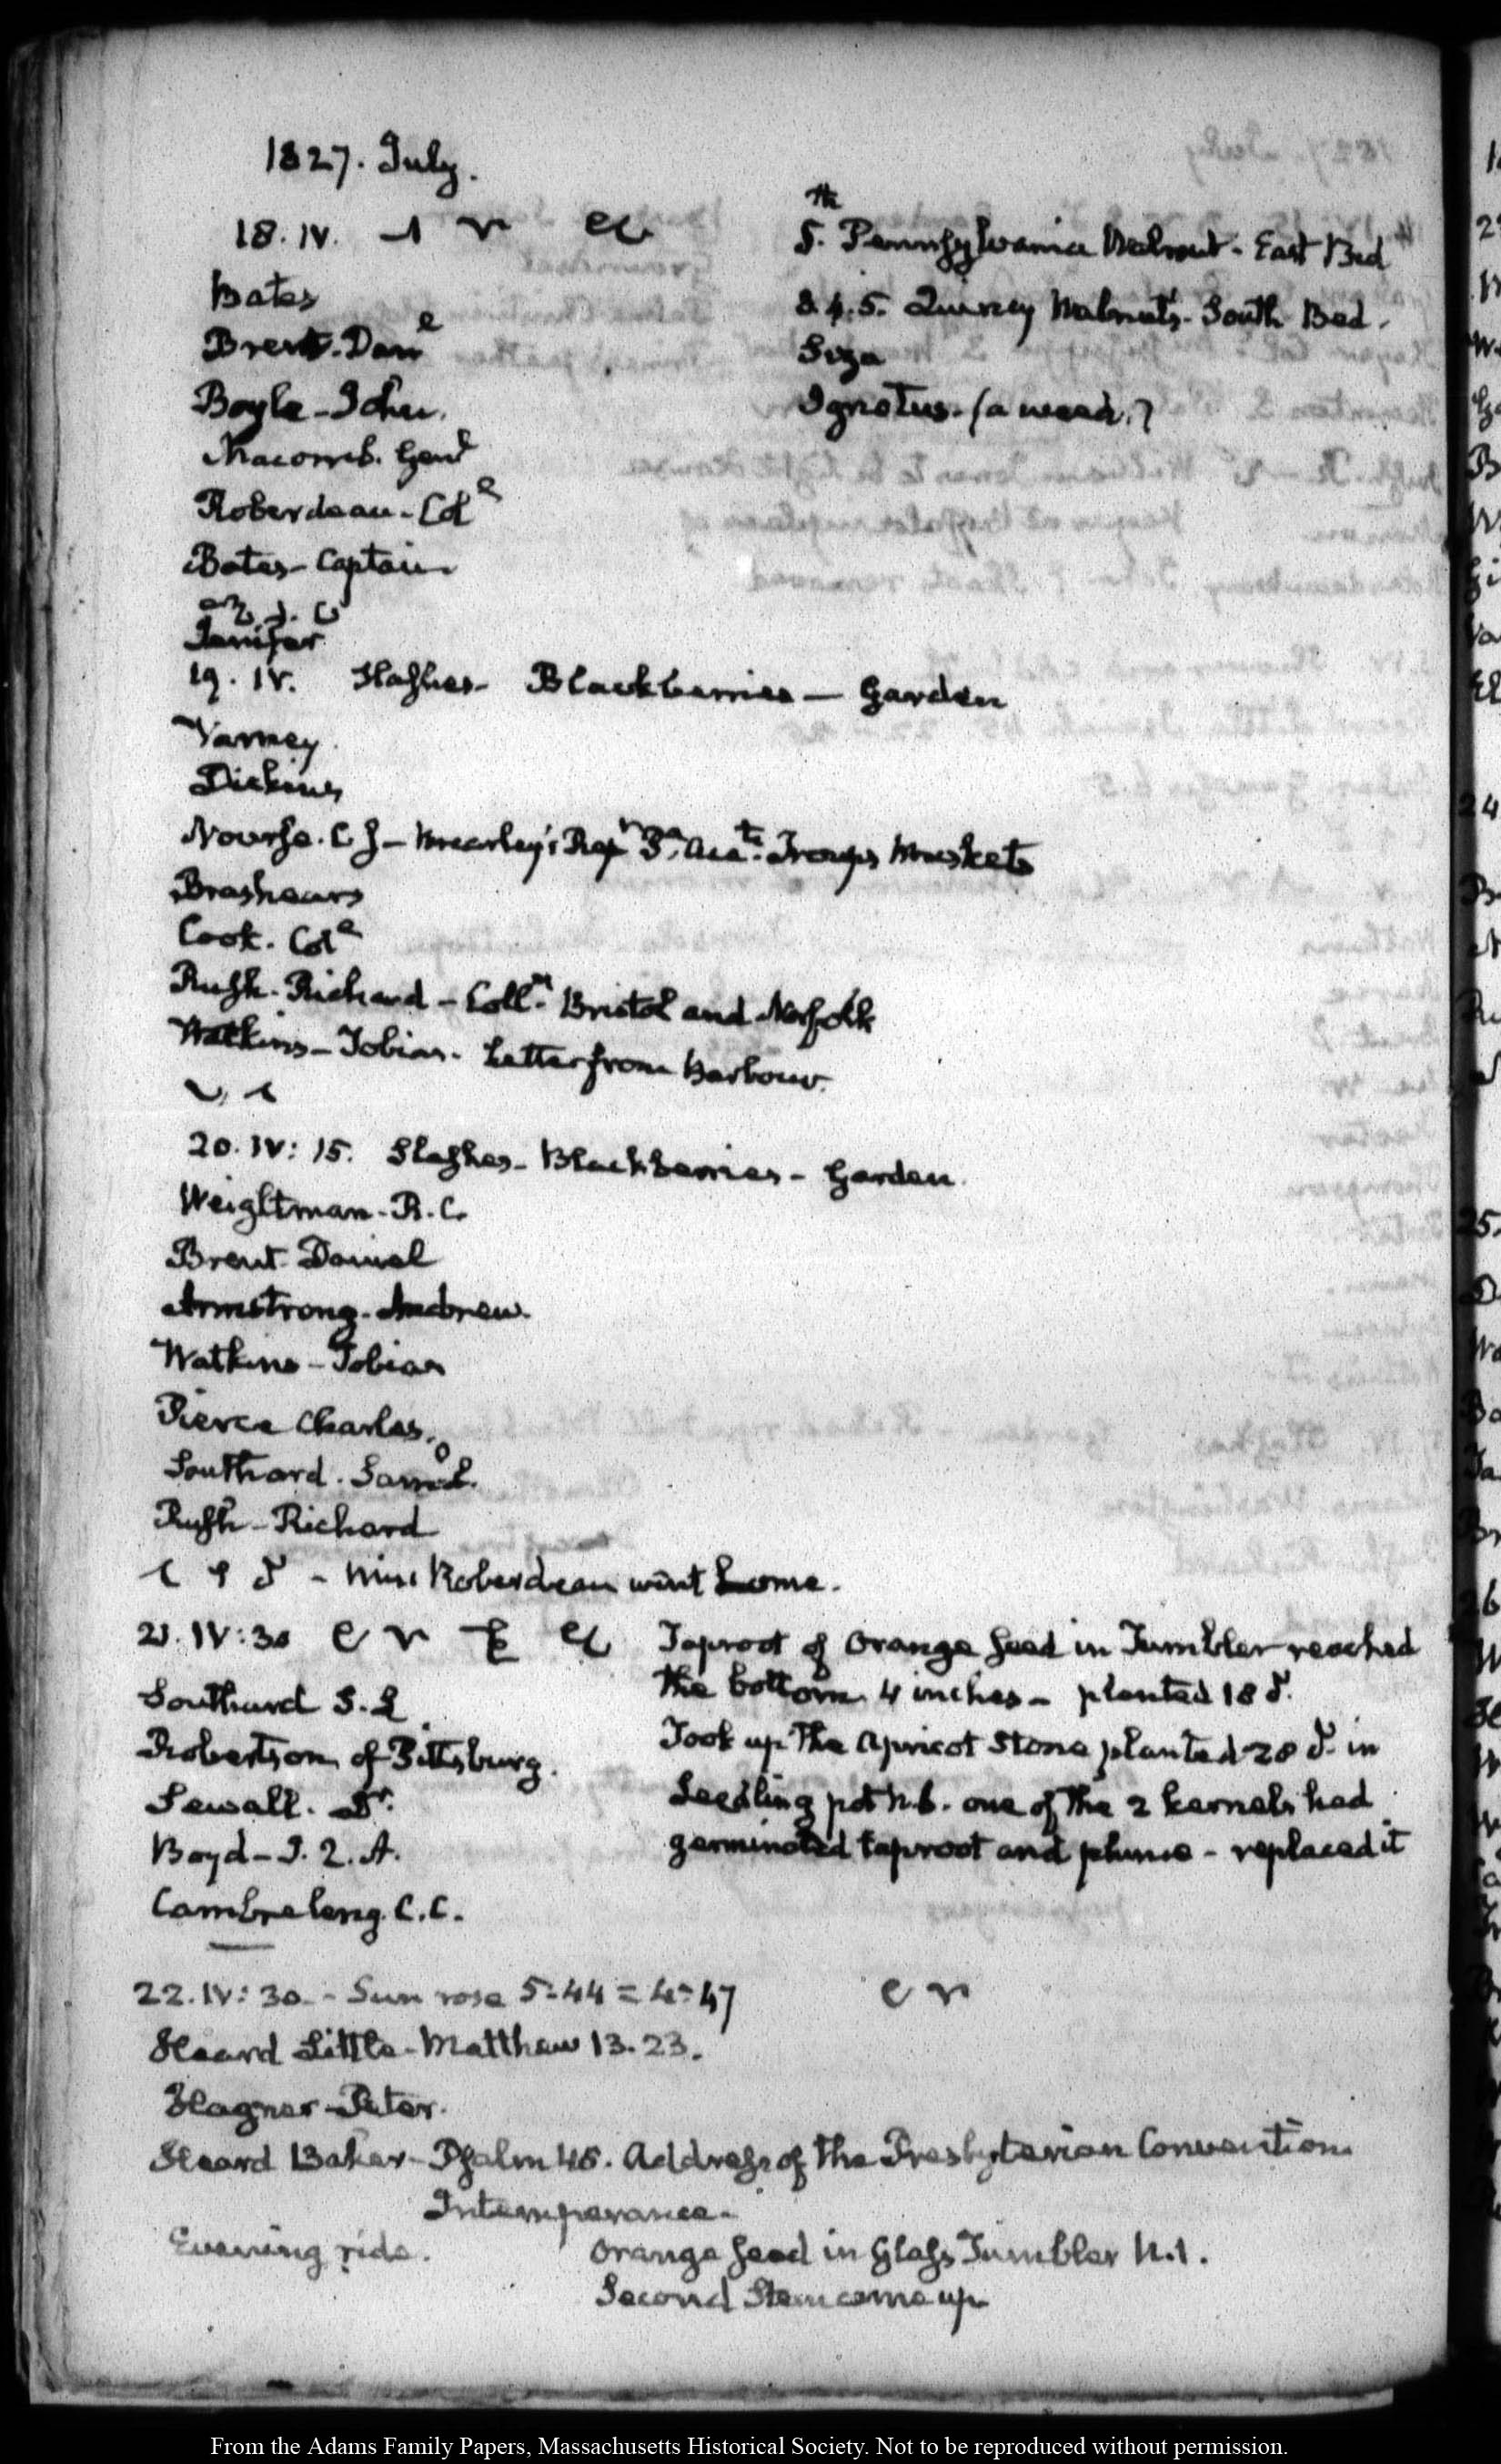 1827. July.
18. IV.
Bates
Brent. Danl
Boyle - John.
Macomb. Genl
Roberdeau - Col
Bates - Captain
Jenifer
th
5. Pennsylvania Walnut - East Bed
3. 4. 5. Quincy Walnuts. South Bed.
Ignotus. (a weed.)
19. IV. Slashes - Blackberries - Garden
Varney
Dickins
Nourse. C J - Troops Muskets
Brashears
Cook. Col
Rush. Richard - Colln. Bristol and Norfolk
Watkins - Tobias. Letter from Barbour.
20. IV: 15. Slashes - Blackberries - Garden.
Weightman - R. C.
Brent Daniel
Armstrong. Andrew.
Watkins - Tobias
Pierce Charles.
Southard. Saml.
Rush - Richard
- Miss Roberdeau went home.
21. IV: 30
Southard S. L
Robertson of Pittsburg.
Sewall. Dr.
Boyd - J. Q. A.
Cambreleng. C. C.
Taproot of Orange Seed in Tumbler reached
the bottom. 4 inches - planted 18
Took up the Apricot Stone planted 28 in
Seedling pot n. 6. one of the 2 kernels had
germinated taproot and plume - replaced it
22. IV: 30 - Sun rose 5-44 = 4-47
Heard Little - Matthew 13. 23.
Hagner - Peter.
Heard Baker - Psalm 46. Address of the Presbyterian Convention
Intemperance -
Evening ride.
Orange Seed in Glass Tumbler N. 1.
Second Stem come up
From the Adams Family Papers, Massachusetts Historical Society. Not to be reproduced without permission.